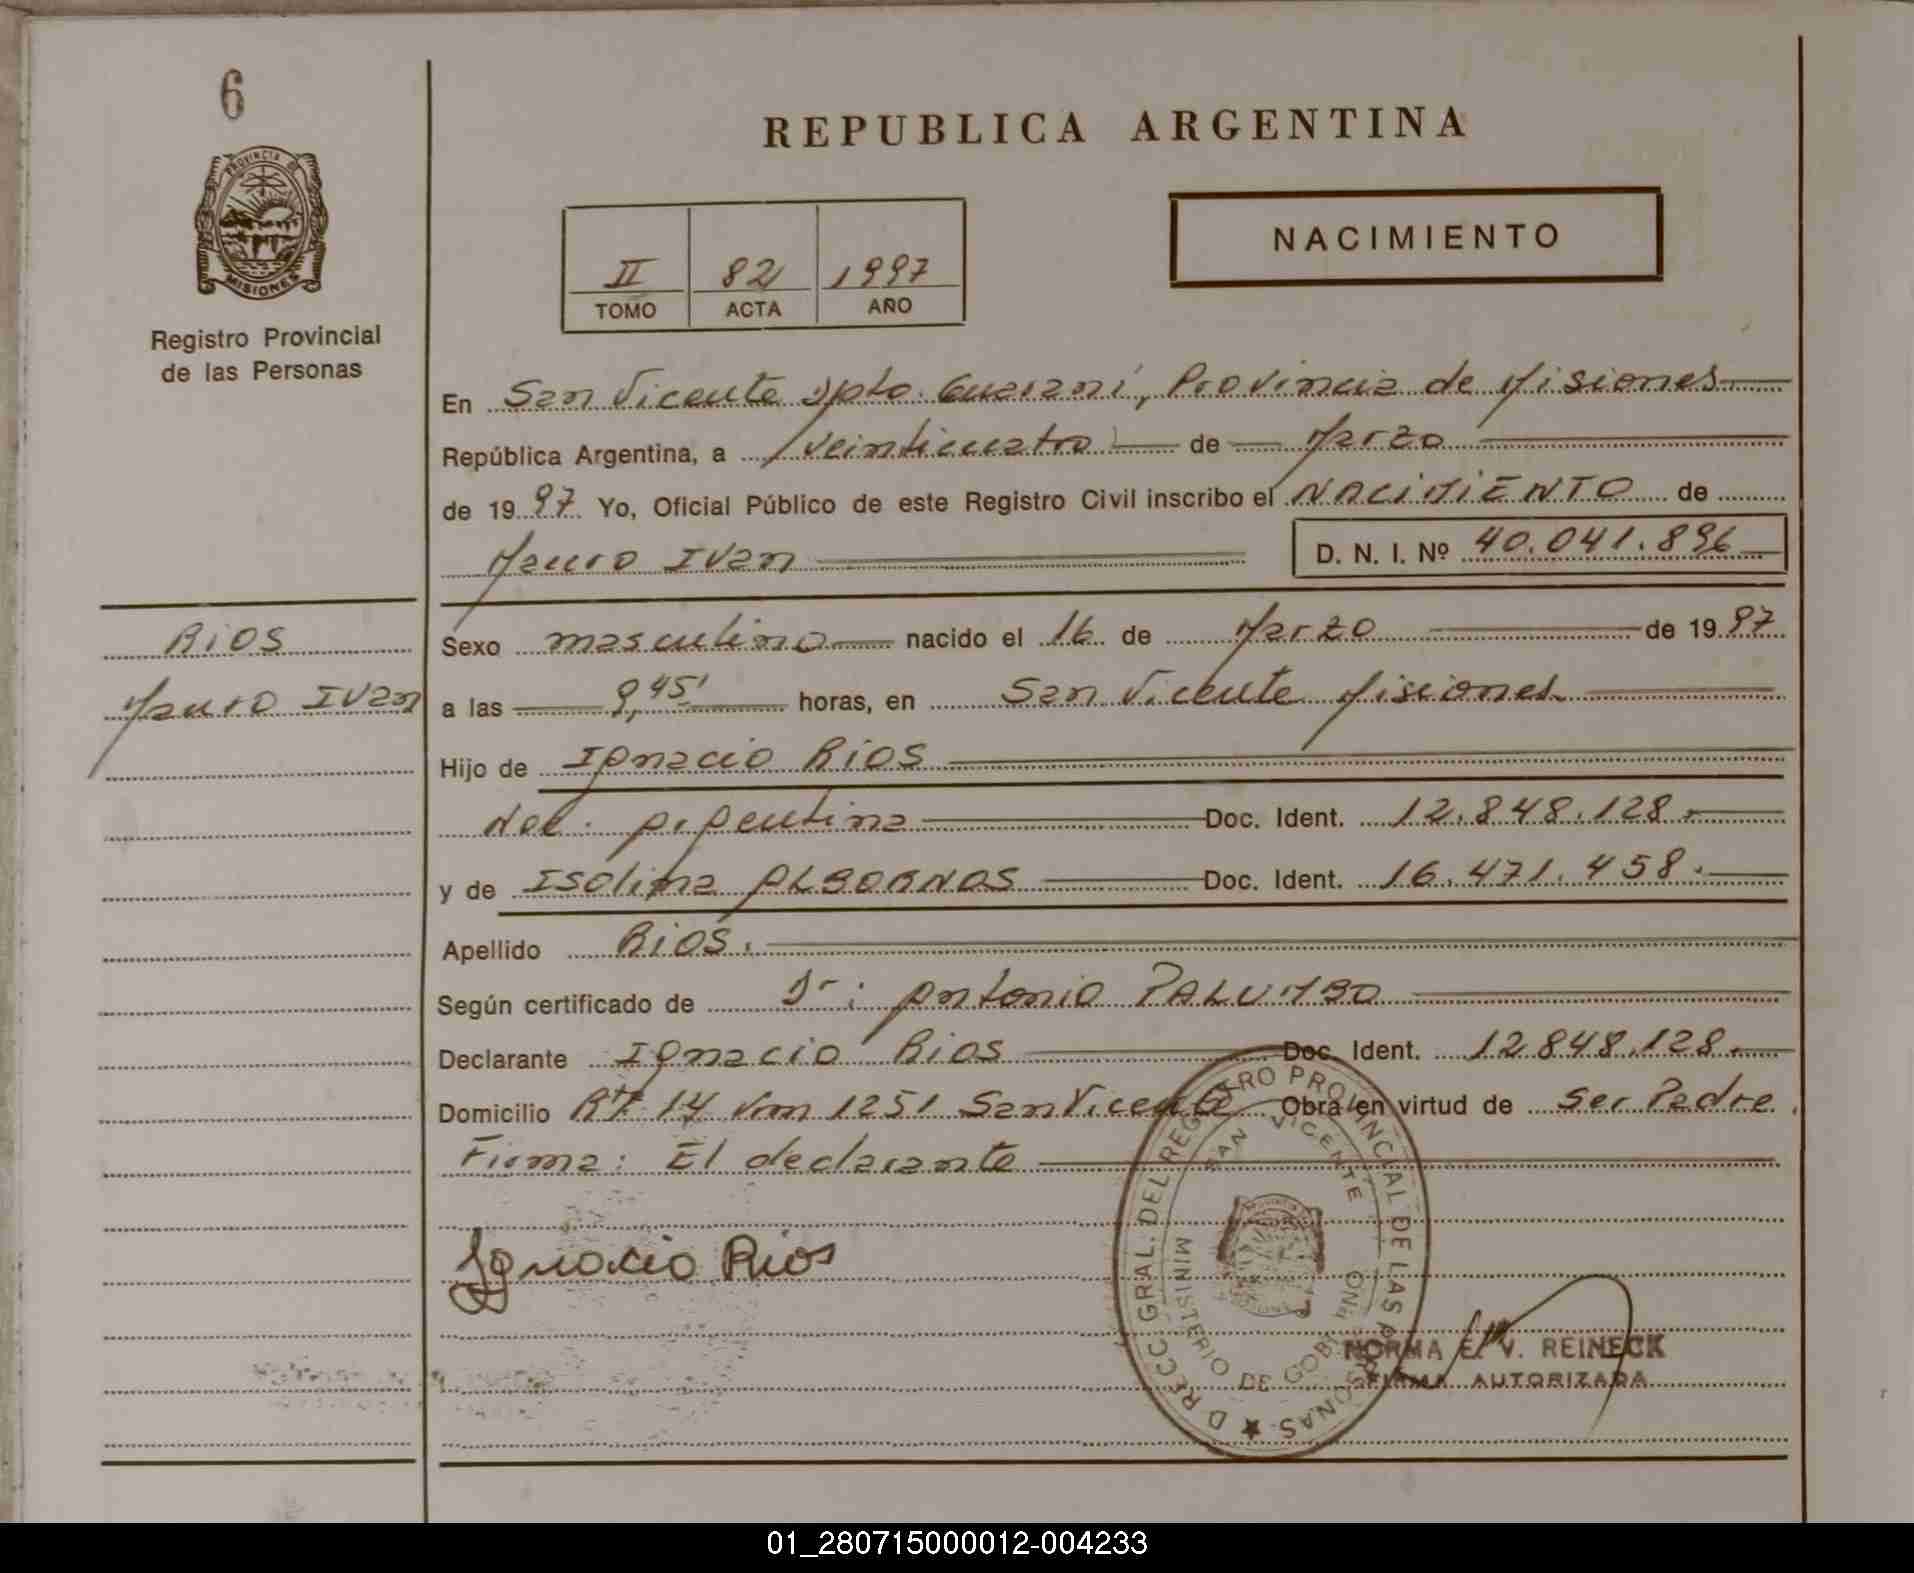 6
PROVINCIA DE
MISIONES
Registro Provincial
de las Personas
REPUBLICA ARGENTINA
II 82 1997
TOMO ACTA AÑO
NACIMIENTO
En San Vicente Dpto. Guaraní, Provincia de Misiones
República Argentina, a veinticuatro de Marzo
de 1997 Yo, Oficial Público de este Registro Civil inscribo el NACIMIENTO de
Mauro IVan D. N. I. Nº 40.041.896
RIOS
Mauro IVan
Sexo masculino nacido el 16 de Marzo de 1997
a las 9,45' horas, en San Vicente Misiones
Hijo de Ignacio RIOS
Nac. Argentina Doc. Ident. 12.848.128.
y de Isolina ALBORNOS Doc. Ident. 16.471.458.
Apellido RIOS.
Según certificado de Dr: Antonio PALUMBO
Declarante Ignacio Rios Doc. Ident. 12848.128.
Domicilio 14 Km 1251 San Vicente Obra en virtud de Ser Padre.
Firma: El declarante
Ignacio Rios
DIRECC. GRAL. DEL REGISTRO PROVINCIAL DE LAS PERSONAS
SAN VICENTE
MINISTERIO DE GOBIERNO
NORMA E. V. REINECK
FIRMA AUTORIZADA
01_280715000012-004233